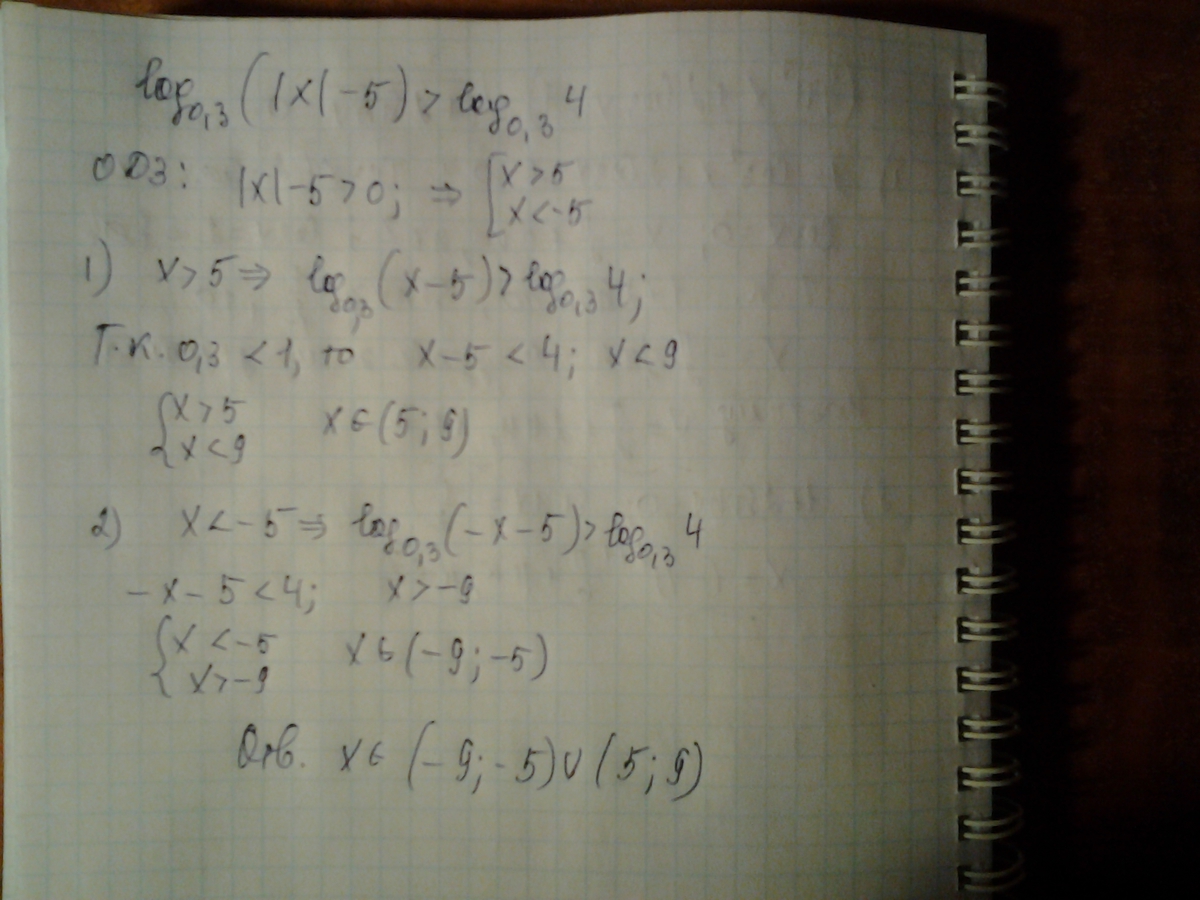 log₀,₃(|x|-5) > log₀,₃ 4
ОДЗ: |x|-5>0; ⇒ [ x>5
x<-5
1) x>5 ⇒ log₀,₃(x-5)>log₀,₃ 4;
Т.к. 0,3 <1, то x-5 < 4; x<9
{ x>5 x∈(5; 9)
x<9
2) x<-5 ⇒ log₀,₃(-x-5)>log₀,₃ 4
-x-5<4; x>-9
{ x<-5 x∈(-9;-5)
x>-9
Отв. x∈ (-9;-5)∪(5;9)